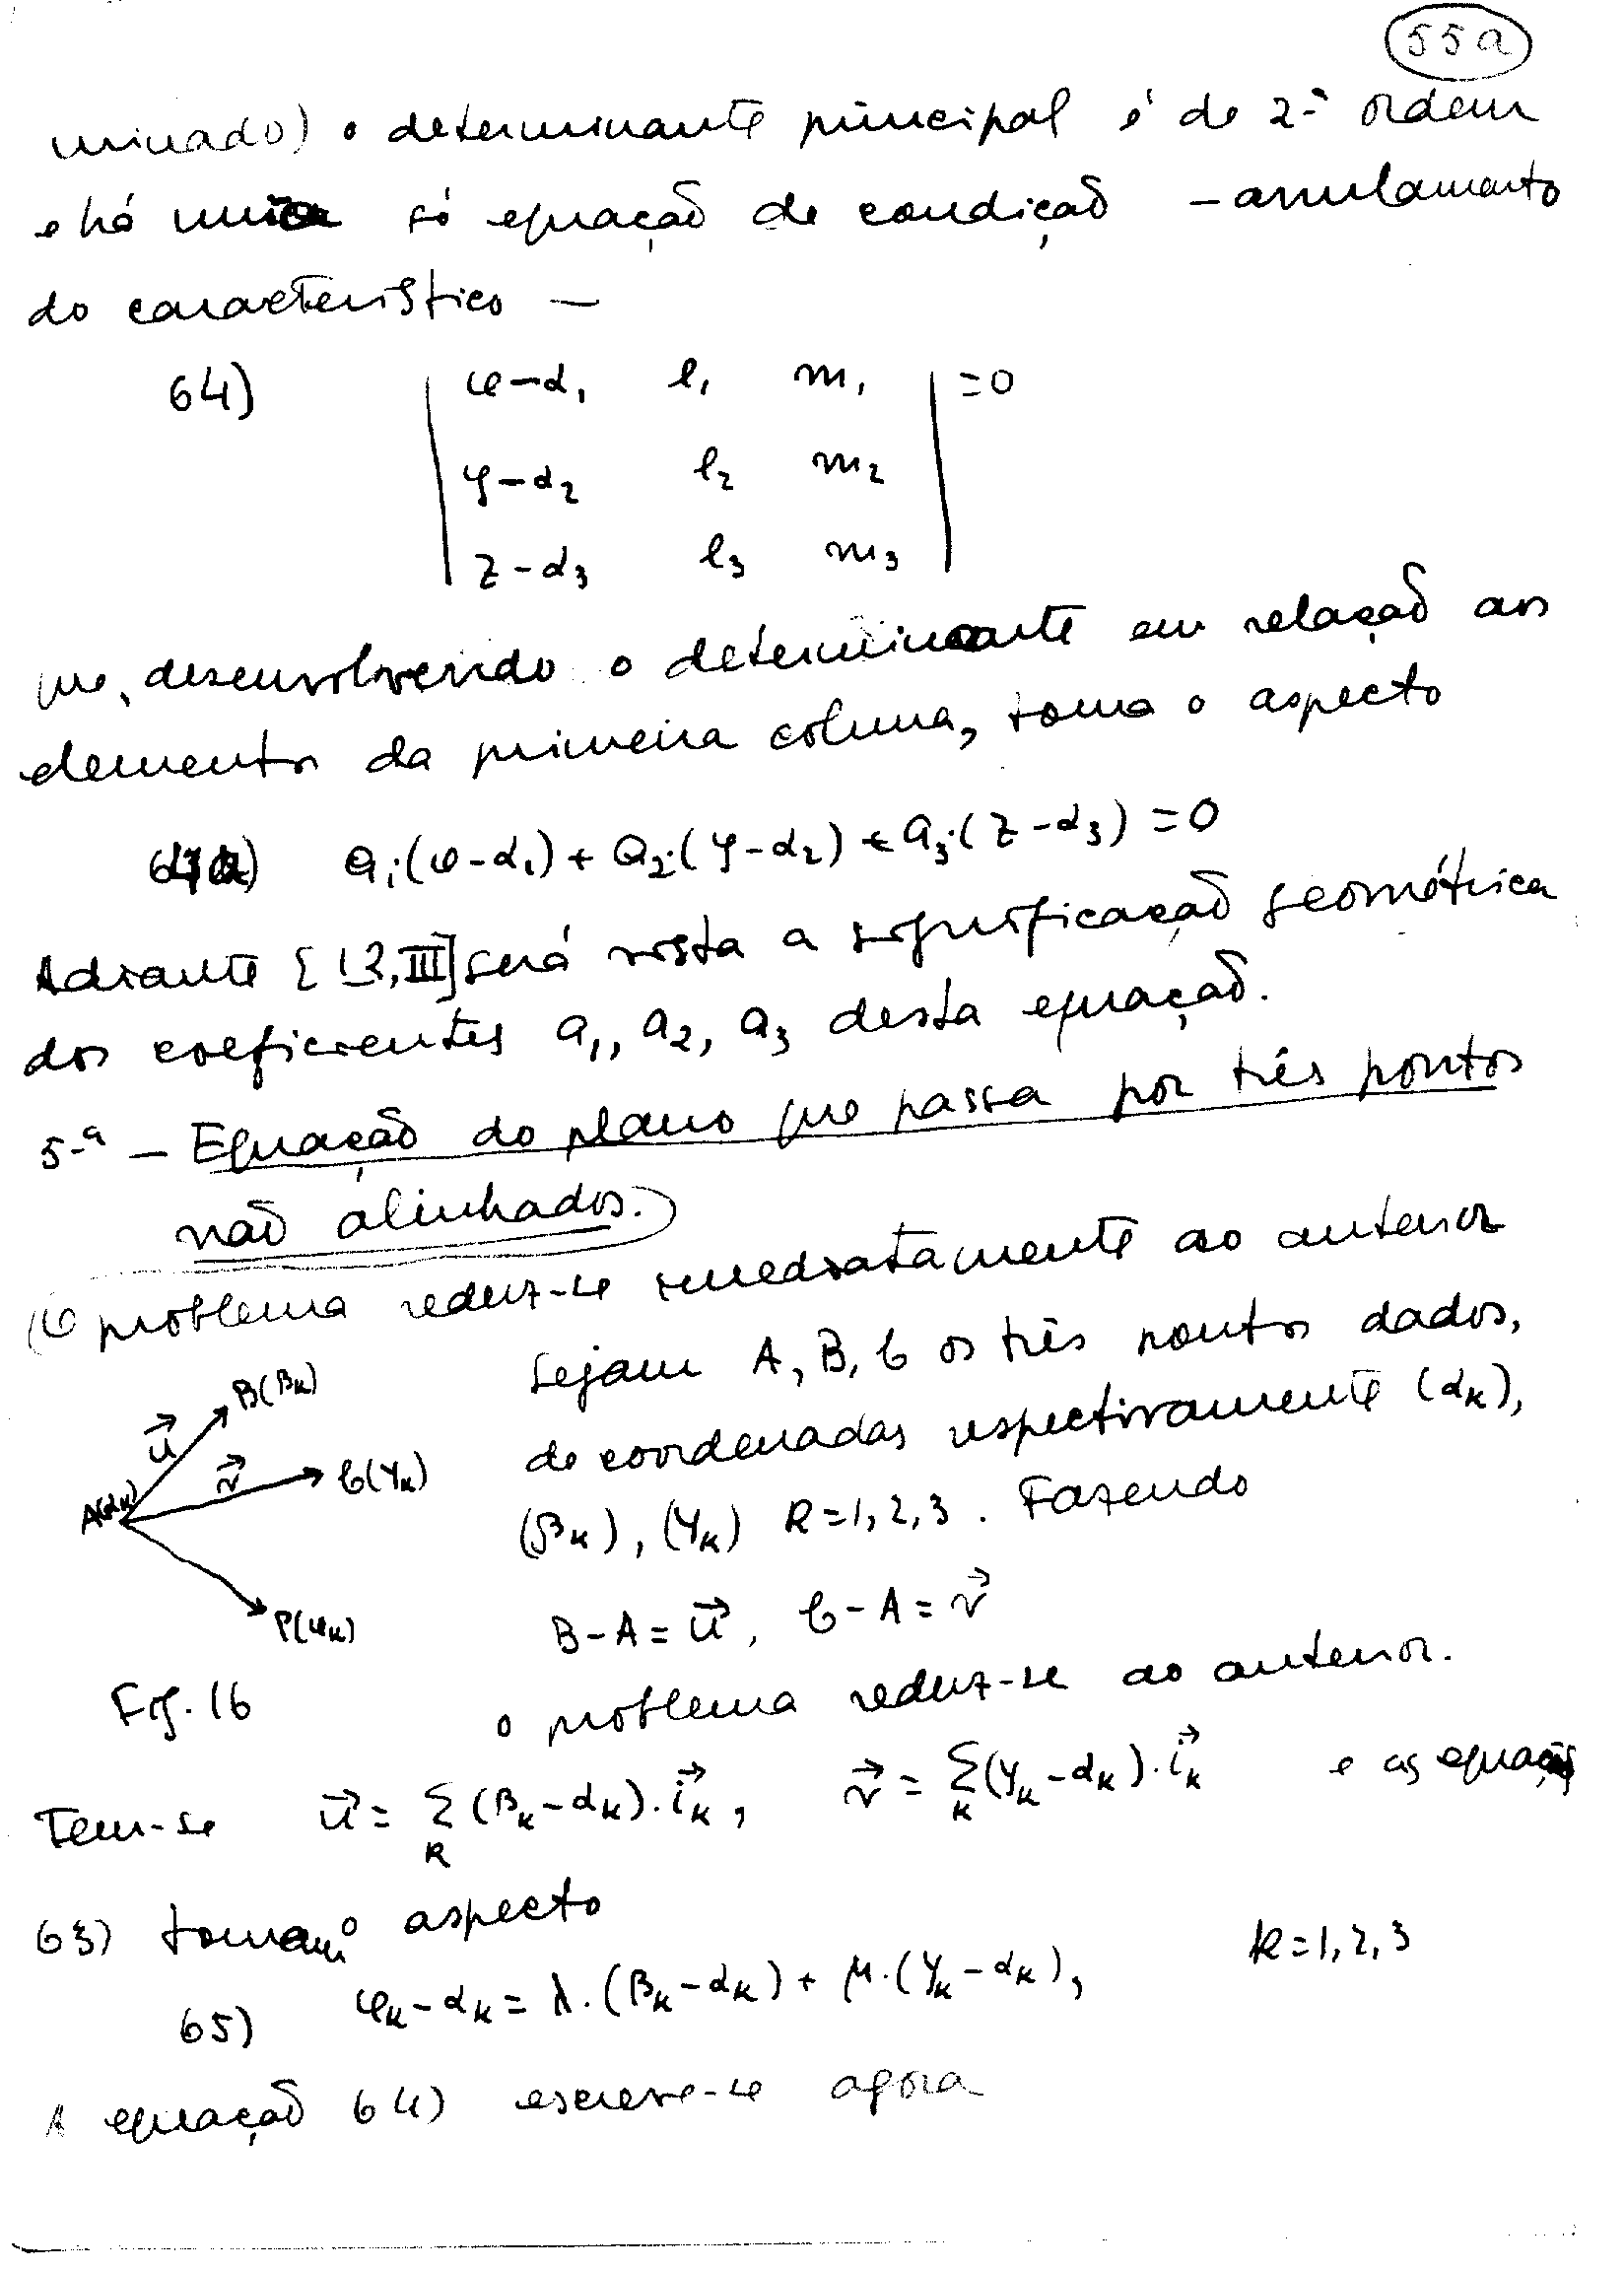 55a
minado) o determinante principal é de 2ª ordem
e há uma só equação de condição — anulamento
do característico —
64) | φ-α₁ l₁ m₁ | =0
| φ-α₂ l₂ m₂ |
| z-α₃ l₃ m₃ |
que, desenvolvendo o determinante em relação aos
elementos da primeira coluna, toma o aspecto
64a) a₁·(φ-α₁) + a₂·(φ-α₂) + a₃·(z-α₃) = 0
Adiante [13, III] será vista a significação geométrica
dos coeficientes a₁, a₂, a₃ desta equação.
5.ª — Equação do plano que passa por três pontos
não alinhados.
O problema reduz-se imediatamente ao anterior
Sejam A, B, C os três pontos dados,
de coordenadas respectivamente (αₖ),
(βₖ), (γₖ) k=1, 2, 3. Fazendo
B-A = u⃗, C-A = v⃗
o problema reduz-se ao anterior.
A(αₖ) u⃗ B(βₖ) v⃗ C(γₖ) P(φₖ)
Fig. 16
Tem-se u⃗ = Σₖ (βₖ-αₖ)·i⃗ₖ, v⃗ = Σₖ (γₖ-αₖ)·i⃗ₖ e as equações
63) tomam o aspecto
65) φₖ-αₖ = λ·(βₖ-αₖ) + μ·(γₖ-αₖ), k=1, 2, 3
A equação 64) escreve-se agora